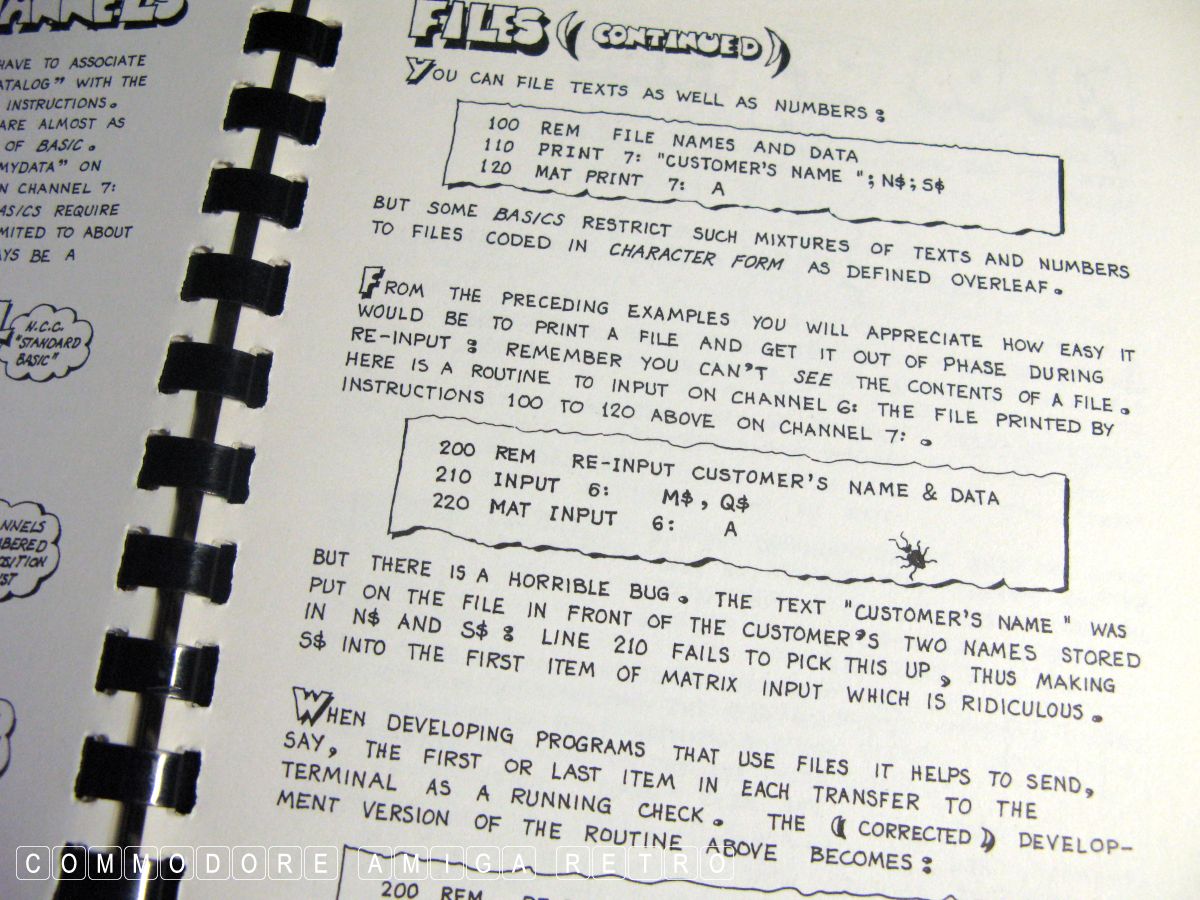 HAVE TO ASSOCIATE
WITH THE
INSTRUCTIONS.
ARE ALMOST AS
OF BASIC.
"MYDATA" ON
CHANNEL 7:
REQUIRE
TO ABOUT
BE A
N.C.C.
"STANDARD
BASIC"
FILES (CONTINUED)
YOU CAN FILE TEXTS AS WELL AS NUMBERS:
100 REM FILE NAMES AND DATA
110 PRINT 7: "CUSTOMER'S NAME "; N$; S$
120 MAT PRINT 7: A
BUT SOME BASICS RESTRICT SUCH MIXTURES OF TEXTS AND NUMBERS
TO FILES CODED IN CHARACTER FORM AS DEFINED OVERLEAF.
FROM THE PRECEDING EXAMPLES YOU WILL APPRECIATE HOW EASY IT
WOULD BE TO PRINT A FILE AND GET IT OUT OF PHASE DURING
RE-INPUT: REMEMBER YOU CAN'T SEE THE CONTENTS OF A FILE.
HERE IS A ROUTINE TO INPUT ON CHANNEL 6: THE FILE PRINTED BY
INSTRUCTIONS 100 TO 120 ABOVE ON CHANNEL 7: .
200 REM RE-INPUT CUSTOMER'S NAME & DATA
210 INPUT 6: M$, Q$
220 MAT INPUT 6: A
BUT THERE IS A HORRIBLE BUG. THE TEXT "CUSTOMER'S NAME " WAS
PUT ON THE FILE IN FRONT OF THE CUSTOMER'S TWO NAMES STORED
IN N$ AND S$: LINE 210 FAILS TO PICK THIS UP, THUS MAKING
S$ INTO THE FIRST ITEM OF MATRIX INPUT WHICH IS RIDICULOUS.
WHEN DEVELOPING PROGRAMS THAT USE FILES IT HELPS TO SEND,
SAY, THE FIRST OR LAST ITEM IN EACH TRANSFER TO THE
TERMINAL AS A RUNNING CHECK. THE (CORRECTED) DEVELOP-
MENT VERSION OF THE ROUTINE ABOVE BECOMES:
200 REM
COMMODORE AMIGA RETRO